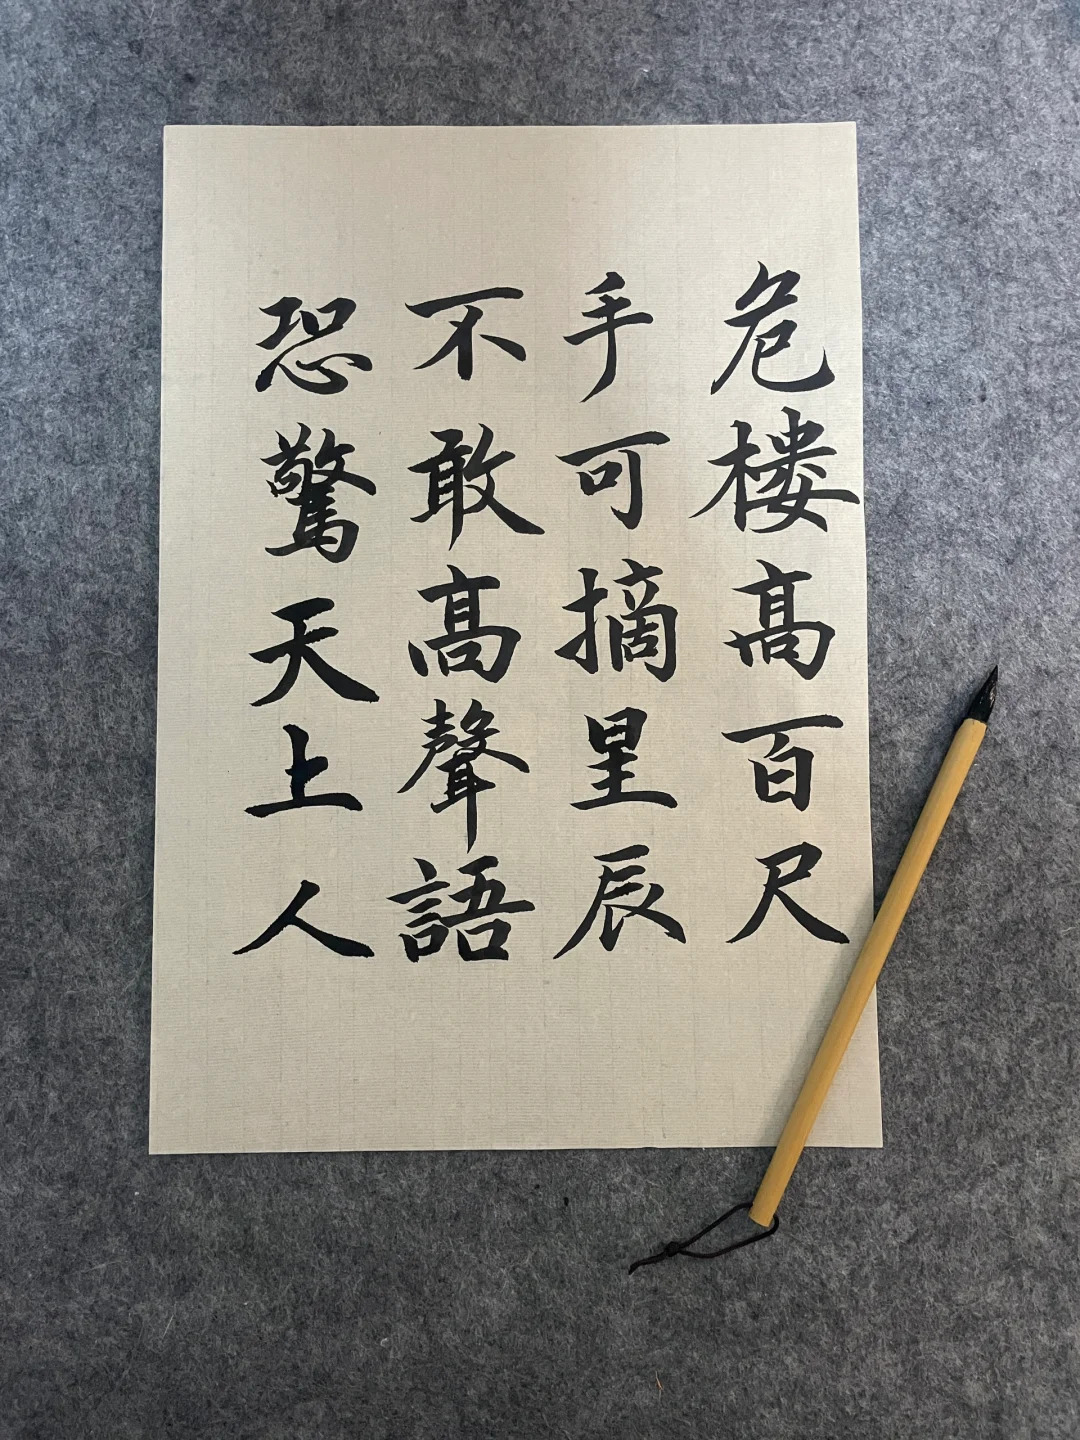 危楼髙百尺
手可摘星辰
不敢髙聲語
恐驚天上人